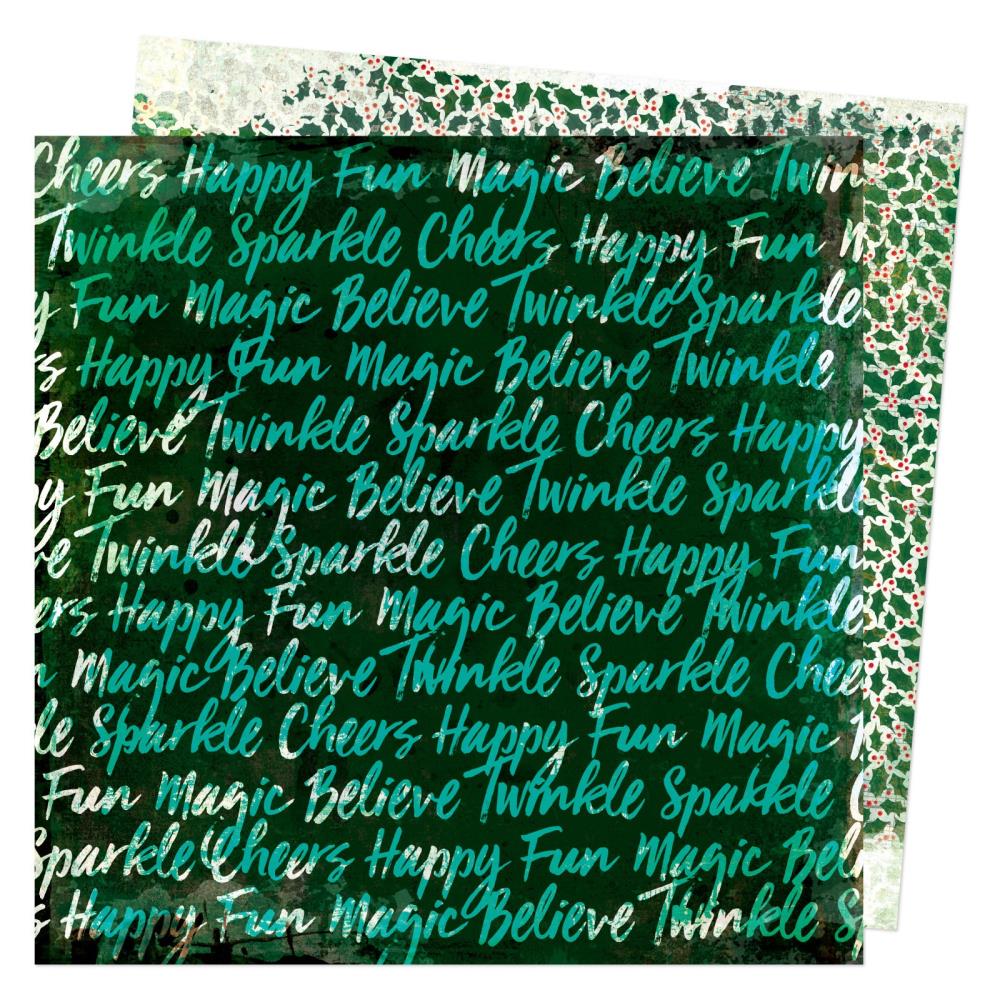 Cheers Happy Fun Magic Believe Twin
Twinkle Sparkle Cheers Happy Fun M
y Fun Magic Believe Twinkle Sparkle
s Happy Fun Magic Believe Twinkle
Believe Twinkle Sparkle Cheers Happy
py Fun Magic Believe Twinkle Sparkle
ve Twinkle Sparkle Cheers Happy Fun
ers Happy Fun Magic Believe Twinkle
n Magic Believe Twinkle Sparkle Chee
le Sparkle Cheers Happy Fun Magic
Fun Magic Believe Twinkle Sparkle C
Sparkle Cheers Happy Fun Magic Beli
s Happy Fun Magic Believe Twinkle S